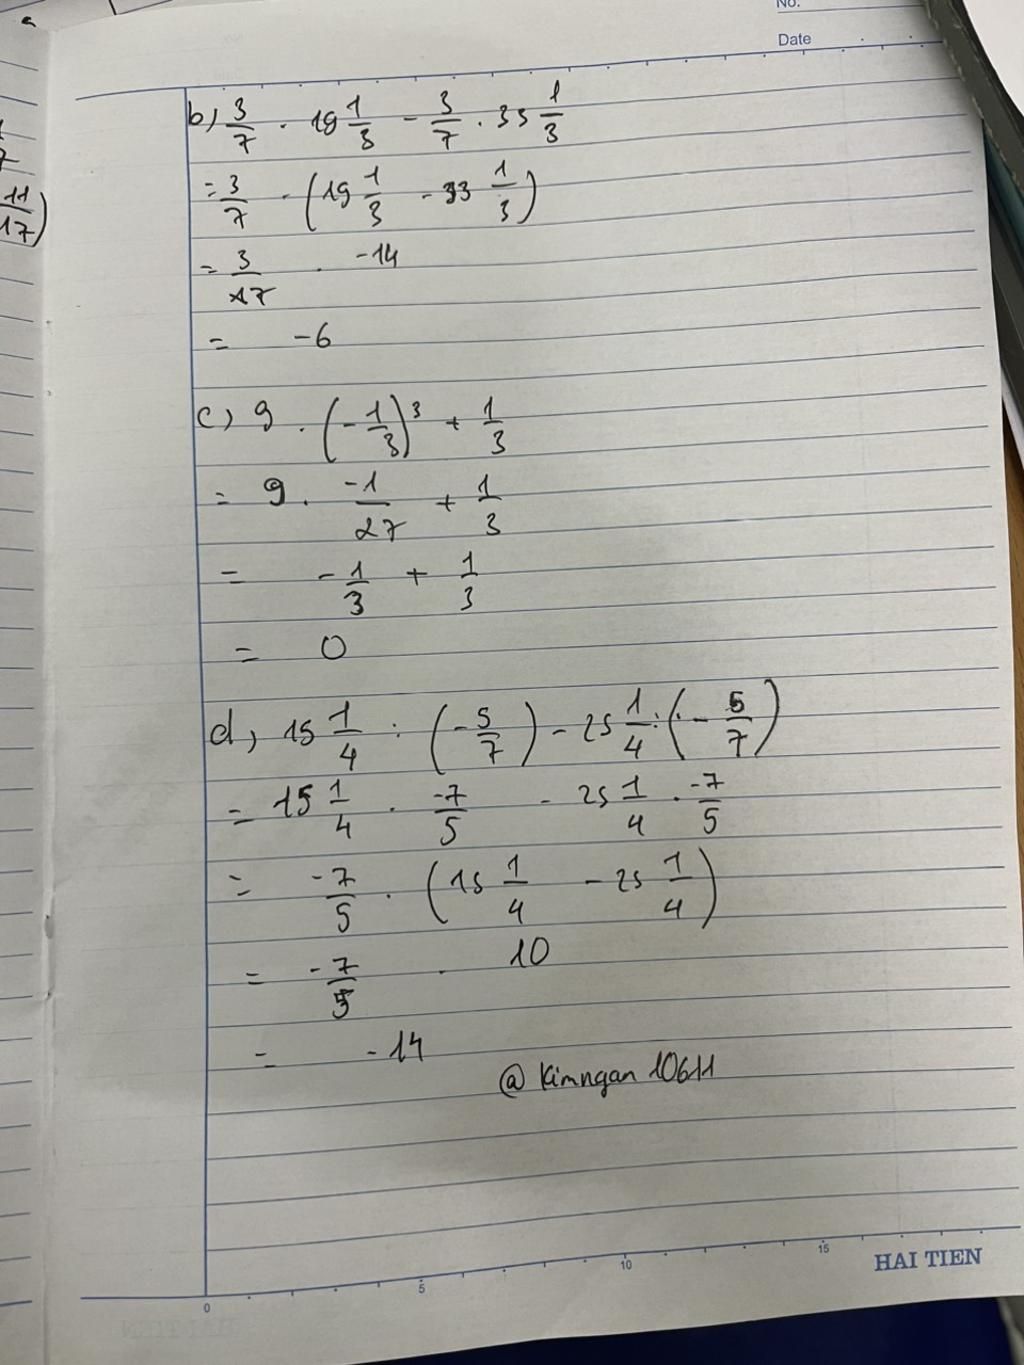 No.
Date
11/17)
b) 3/7 . 19 1/3 - 3/7 . 33 1/3
= 3/7 . (19 1/3 - 33 1/3)
= 3/17 . -14
= -6
c) 9 . (-1/3)³ + 1/3
= 9 . -1/27 + 1/3
= -1/3 + 1/3
= 0
d, 15 1/4 : (-5/7) - 25 1/4 : (-5/7)
= 15 1/4 . -7/5 - 25 1/4 . -7/5
= -7/5 . (15 1/4 - 25 1/4)
= -7/5 . 10
= -14
@ Kimngan 10611
0 5 10 15
HAI TIEN